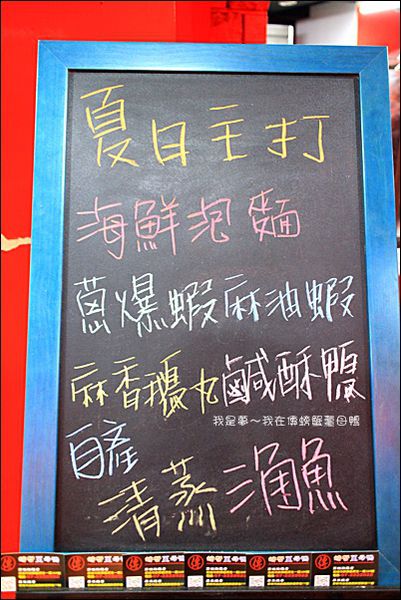 夏日主打
海鮮泡麵
蔥爆蝦麻油蝦
麻香鵝丸鹹酥鴨
我是夢～我在傳螃蟹薑母鴨
自產
清蒸海魚